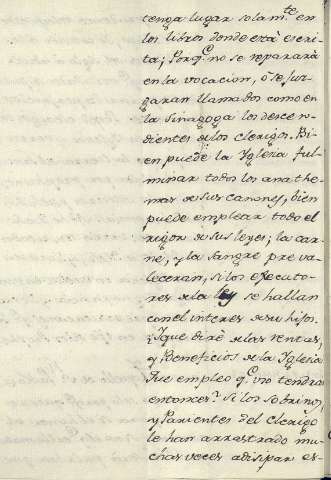 tenga lugar solam.te en
los libros donde está escri
ta; Porq.e no se reparará
en la vocacion, ò se juz
garan llamados como en
la Sinagoga los descen
dientes de los clerigos. Bi
en puede la Yglesia ful
minar todos los anathe
mas de sus canones, bien
puede emplear todo el
rigor de sus leyes; la car
ne, y la sangre preva
leceran, si los executo
res de la ley se hallan
con el interes de su hijo.
Y que diré de las rentas,
y Beneficios de la Yglesia
Que empleo q.e no tendran
entonces? Si los sobrinos,
y Parientes del clerigo
le han arrastrado mu
chas veces a disipar es-